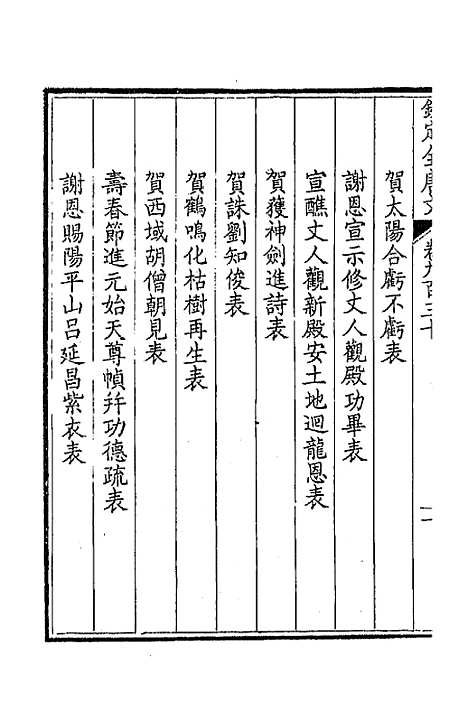 欽定全唐文 卷九百三十 一
賀太陽合虧不虧表
謝恩宣示修丈人觀殿功畢表
宣醮丈人觀新殿安土地迴龍恩表
賀獲神劍進詩表
賀誅劉知俊表
賀鶴鳴化枯樹再生表
賀西域胡僧朝見表
壽春節進元始天尊幀并功德疏表
謝恩賜陽平山呂延昌紫衣表